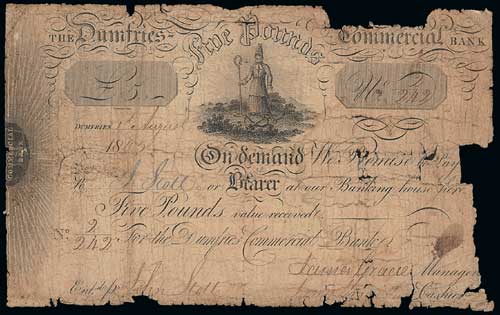 THE Dumfries Commercial BANK
Five Pounds
£5
No 2/242
DUMFRIES 1st August
180
On demand We Promise to Pay
To J. Scott or Bearer at our Banking house here
Five Pounds value received
No 2/242 For the Dumfries Commercial Bank
James Gracie Manager
Entd pr John Scott Cashier